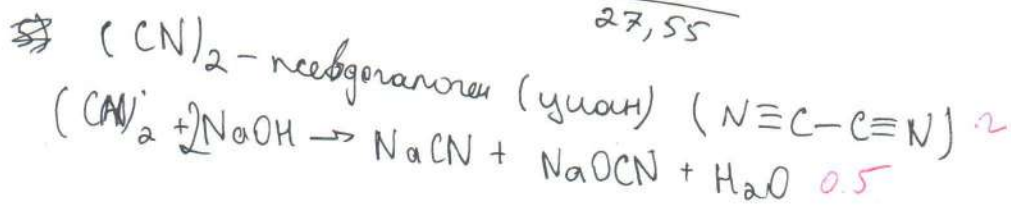 27,55
(CN)₂ – псевдогалоген (циан) (N≡C–C≡N) 2
(CN)₂ + 2NaOH → NaCN + NaOCN + H₂O 0.5